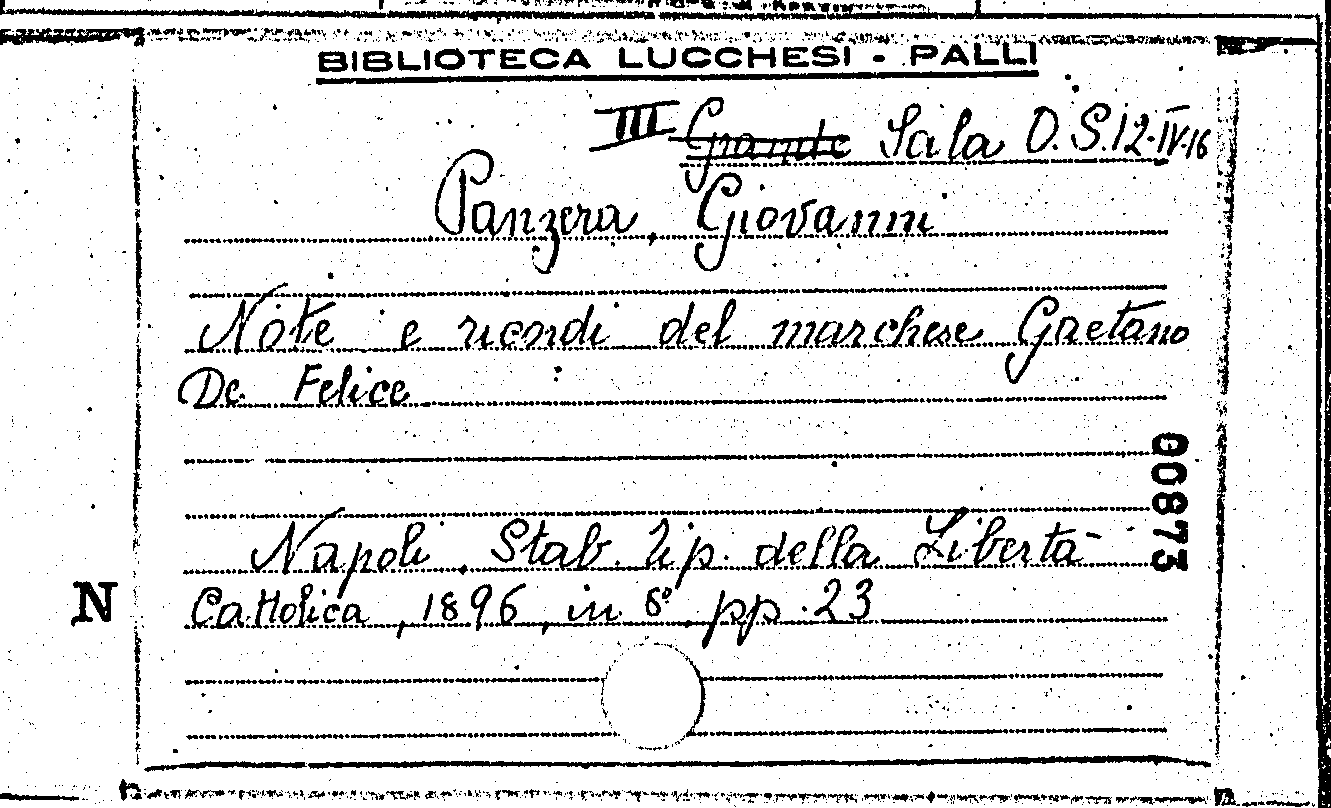 BIBLIOTECA LUCCHESI - PALLI
III Grande Sala O.S.12-IV-16
Panzera, Giovanni
Note e ricordi del marchese Gaetano
De Felice
00873
Napoli, Stab. Tip. della Libertà
N
Cattolica, 1896, in 8º pp. 23